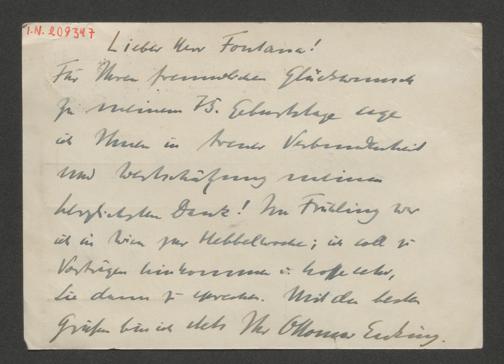 I.N. 209347
Lieber Herr Fontana!
Für Ihren freundlichen Glückwunsch
zu meinem 75. Geburtstage sage
ich Ihnen in treuer Verbundenheit
und Wertschätzung meinen
herzlichsten Dank! Im Frühling
ich in Wien zur Hebbelwoche; ich soll zu
Vorträgen hinkommen u. hoffe sehr,
Sie dann zu sprechen. Mit den besten
Grüßen bin ich stets Ihr Ottomar Enking.